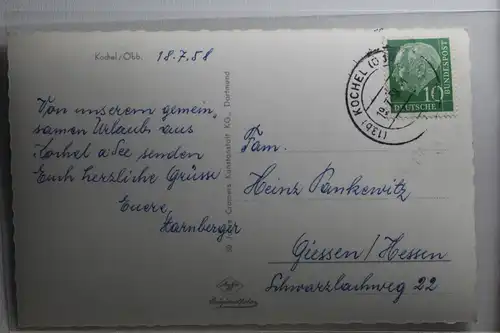 Kochel/Obb. 18.7.58
Von unserem gemein-
samen Urlaub aus
Kochel a See senden
Euch herzliche Grüsse
Euere
Starnberger
Cramers Kunstanstalt KG., Dortmund
(13b) KOCHEL
10
DEUTSCHE
BUNDESPOST
Fam.
Heinz Pankewitz
Giessen/Hessen
Schwarzlachweg 22
Agfa